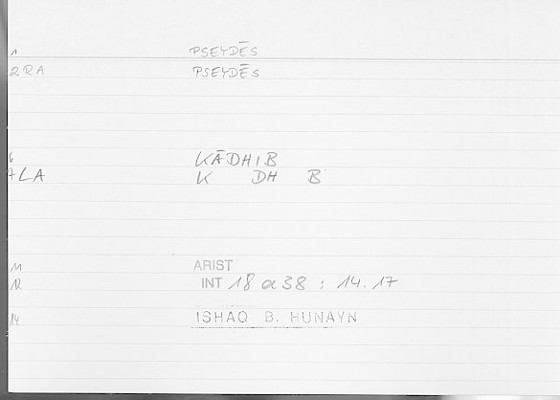 1 PSEYDĒS
2RA PSEYDĒS
6 KĀDHIB
7LA K DH B
11 ARIST
12 INT 18 a 38 : 14.17
14 ISHAQ B. HUNAYN